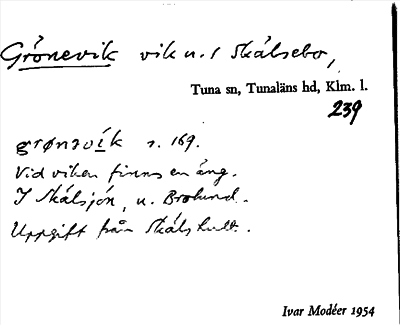 Grönevik vik u. f Skälsebo,
Tuna sn, Tunaläns hd, Klm. l.
239
grønəvík s. 169.
Vid viken finns en äng.
I Skälsjön, u. Brolund.
Uppgift från Skälshult.
Ivar Modéer 1954